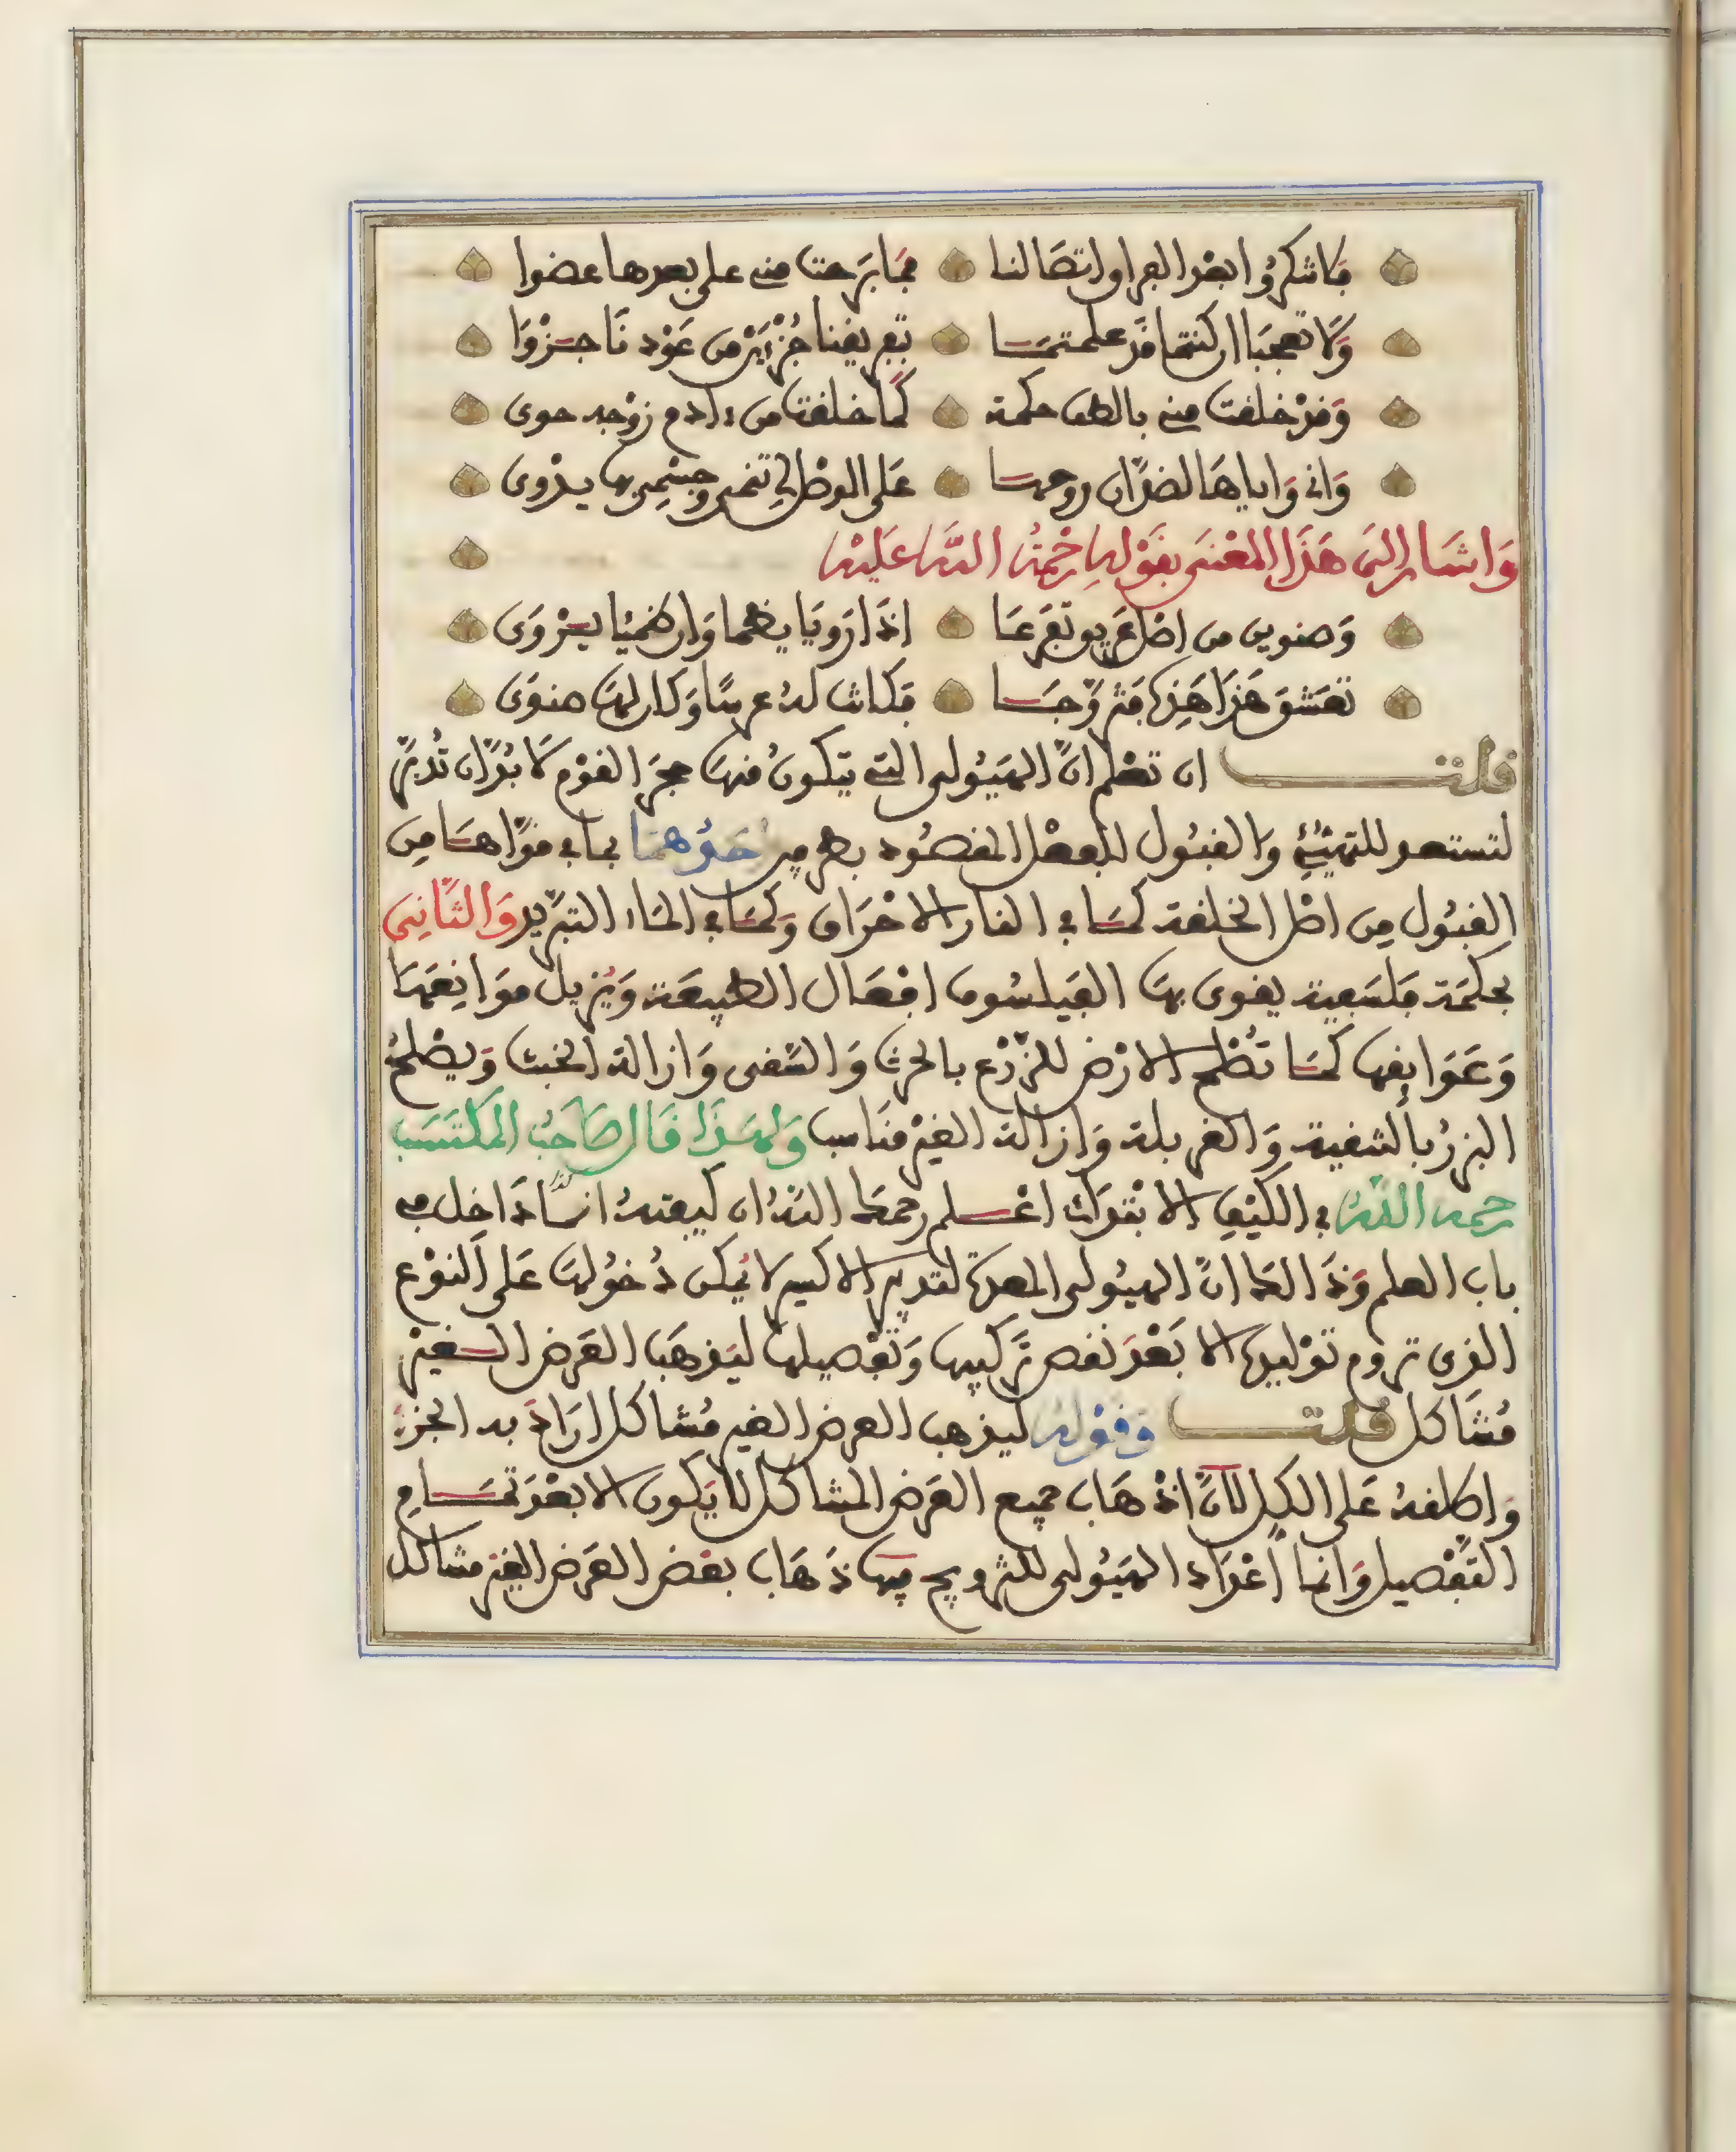 فاشكروا بعد الفراق اتصالنا فما برحت مني على بعدها عضوا
ولا تعجبا ان كنتما قد علمتما تفريقنا جزءين من عود ناجزوا
وقد خلقت مني بالطف حكمة كما خلقت من ءادم زوجه حوى
واني واياها لضدان روحها على الوصل لي تنمي وجسمي بها يذوى
واشار الى هذا المعنى بقوله رحمة الله عليه
وصنوين من اصل عريق تفرعا اذا رويا يظما وان ظميا يروى
تعشق هذا هذه فتزوجا فكانت له عرسا وكان لها صنوى
قلت ان تعلم ان الهيولى التي يتكون منها حجر القوم لا بد ان تدبر
لتستعد للتهيئ والقبول للفعل المقصود بطريقين احدهما بما في قواها من
القبول من اصل الخلقة كما في النار الاحراق وكما في الماء التبريد والثاني
بحكمة فلسفية يقوى بها الفيلسوف افعال الطبيعة ويزيل موانعها
وعوايقها كما تصلح الارض للزرع بالحرث والسقى وازالة الخبث ويصلح
البزر بالتنقية والغربلة وازالة الغير مناسب ولهذا قال صاحب المكتسب
رحمه الله في الكيف الانفراك اعلم رحمك الله ان كيفته انما داخل في
باب العلم وذالك ان الهيولى المعدة لتدبير الاكسير لا يمكن دخولها على النوع
الذى تروم توليدها الا بعد نقص تركيبها وتفصيلها ليذهب العرض الغير
مشاكل قلت وقوله ليذهب العرض الغير مشاكل اراد به الجزء
واطلقه على الكل لان اذهاب جميع العرض المشاكل لا يكون الا بعد تمام
التفصيل وانما اعداد الهيولى للتزويج فيها ذهاب بعض العرض الغير مشاكل